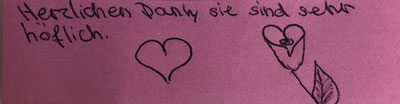 Herzlichen Dank, sie sind sehr
höflich.